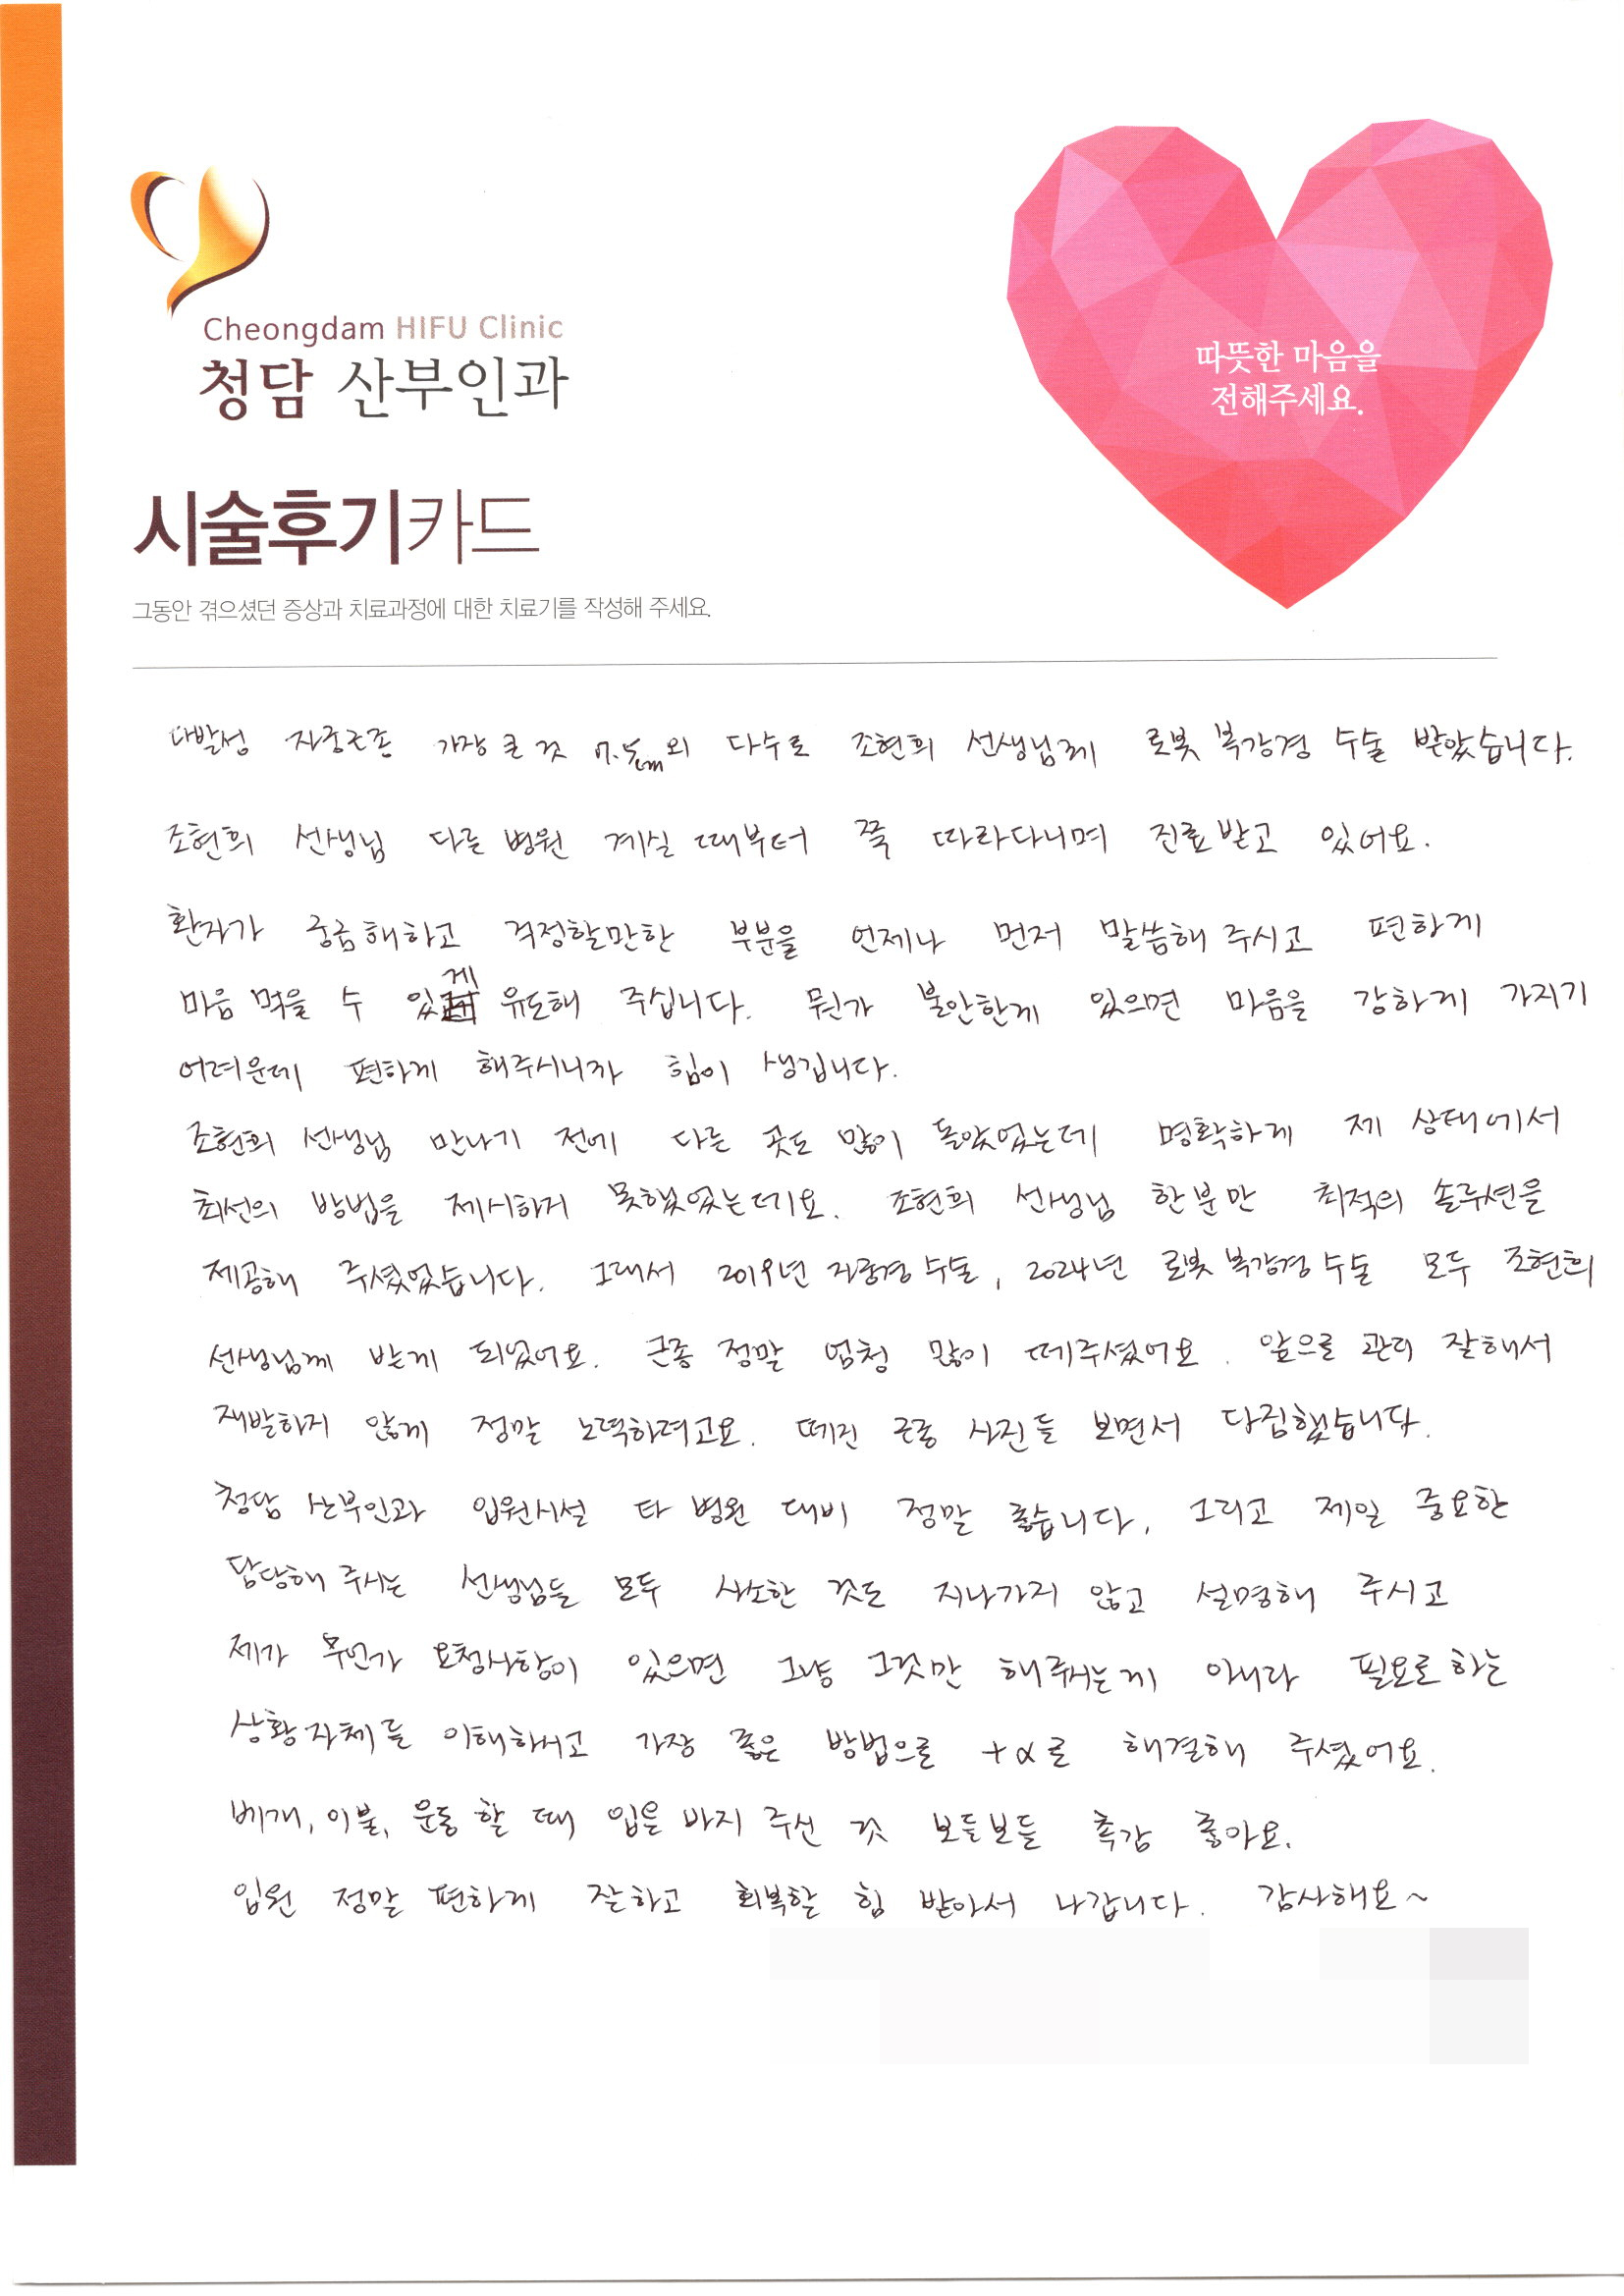 Cheongdam HIFU Clinic
청담 산부인과
따뜻한 마음을
전해주세요.
시술후기카드
그동안 겪으셨던 증상과 치료과정에 대한 치료기를 작성해 주세요.
다발성 자궁근종 가장 큰 것 7.5cm외 다수로 조현희 선생님께 로봇 복강경 수술 받았습니다.
조현희 선생님 다른 병원 계실 때부터 쭉 따라다니며 진료받고 있어요.
환자가 궁금해하고 걱정할만한 부분을 언제나 먼저 말씀해 주시고 편하게
마음 먹을 수 있게 유도해 주십니다. 뭔가 불안한게 있으면 마음을 강하게 가지기
어려운데 편하게 해주시니까 힘이 생깁니다.
조현희 선생님 만나기 전에 다른 곳도 많이 돌았었는데 명확하게 제 상태에서
최선의 방법을 제시하지 못했었는데요. 조현희 선생님 한분만 최적의 솔루션을
제공해 주셨었습니다. 그래서 2019년 자궁경 수술, 2024년 로봇 복강경 수술 모두 조현희
선생님께 받게 되었어요. 근종 정말 엄청 많이 떼주셨어요. 앞으로 관리 잘해서
재발하지 않게 정말 노력하려고요. 떼진 근종 사진들 보면서 다짐했습니다.
청담 산부인과 입원시설 타 병원 대비 정말 좋습니다. 그리고 제일 중요한
담당해 주시는 선생님들 모두 사소한 것도 지나가지 않고 설명해 주시고
제가 무언가 요청사항이 있으면 그냥 그것만 해주시는게 아니라 필요로 하는
상황 자체를 이해하시고 가장 좋은 방법으로 +α로 해결해 주셨어요.
베개, 이불, 운동 할 때 입을 바지 주신 것 보들보들 촉감 좋아요.
입원 정말 편하게 잘하고 회복할 힘 받아서 나갑니다. 감사해요~